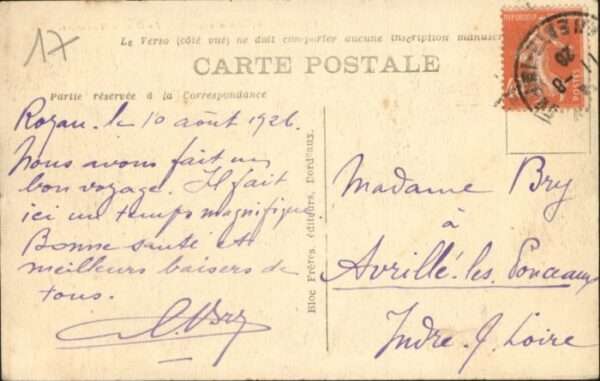 17
Le Verso (côté vue) ne doit comporter aucune inscription manuscr
CARTE POSTALE
Partie réservée à la Correspondance
Royan. le 10 août 1926.
Nous avons fait un
bon voyage. Il fait
ici un temps magnifique.
Bonne santé et
meilleurs baisers de
tous.
Bry
Bloc Frères, éditeurs, Bordeaux.
Madame Bry
à
Avrillé-les Ponceaux
Indre-&-Loire